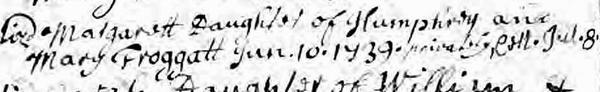 Margarett Daughter of Humphrey and
Mary Froggatt Jun. 10. 1739. privately, Jul. 8.
Daughter of William &